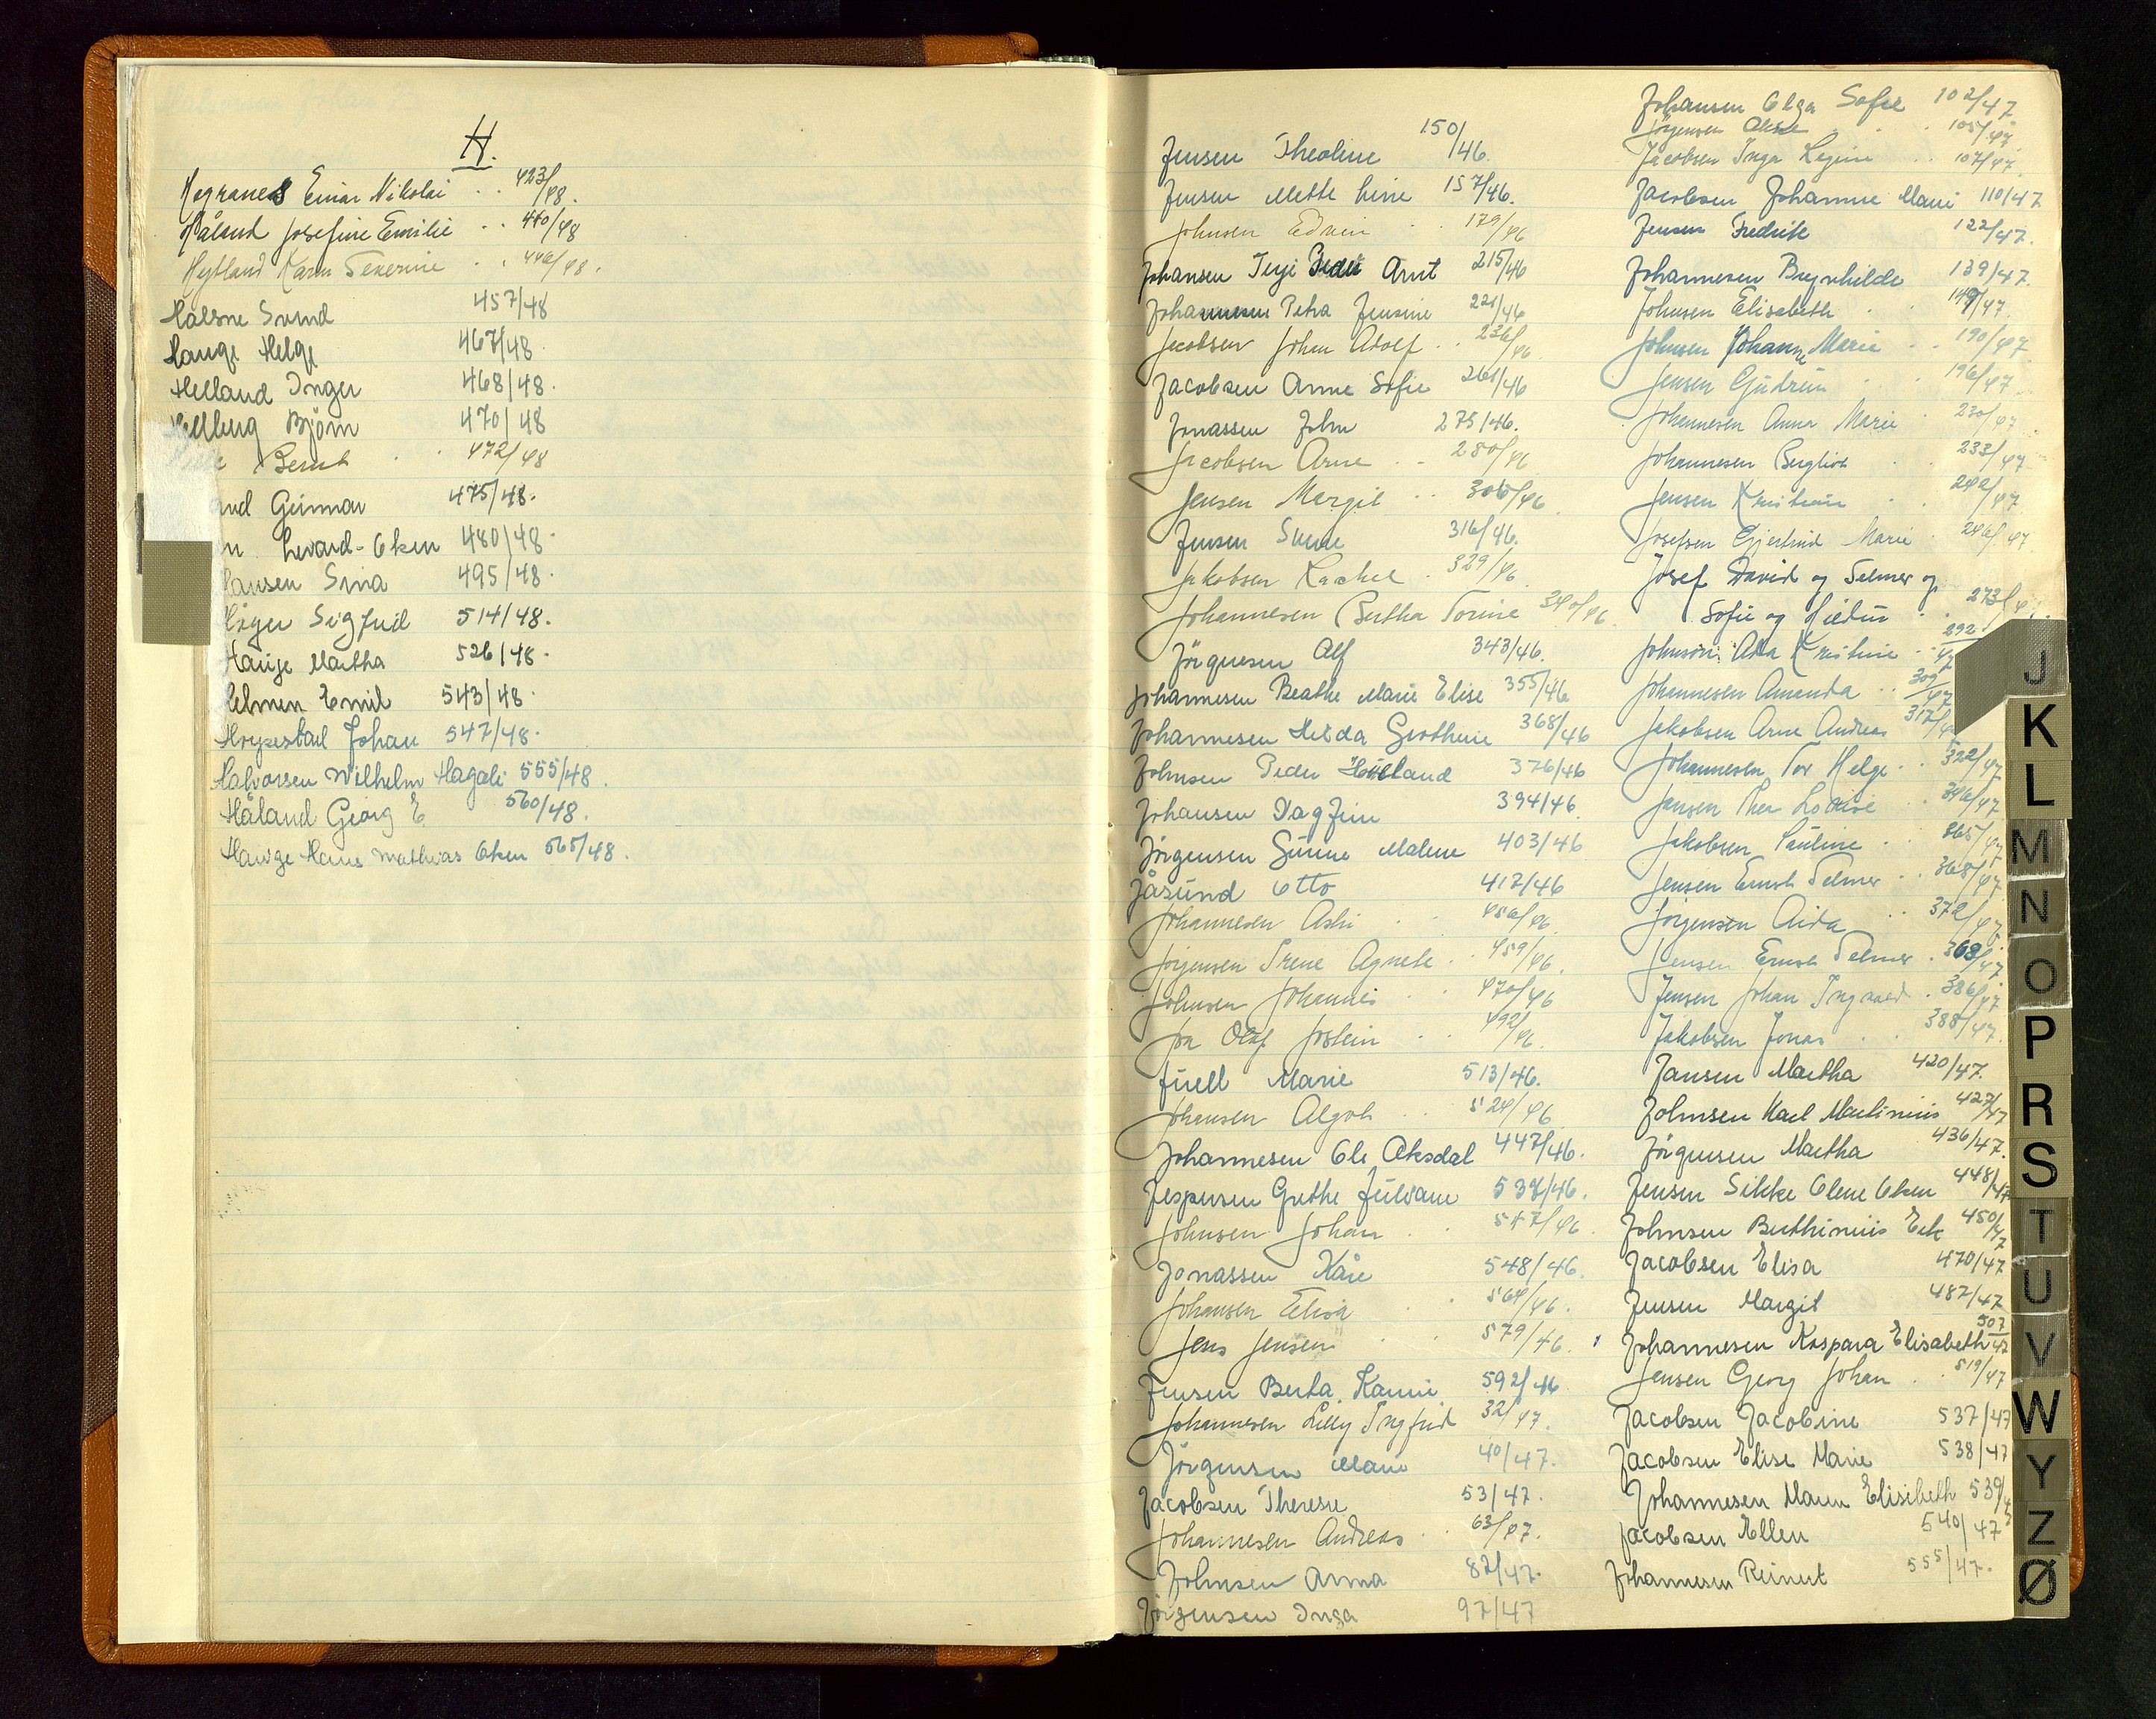 H.
Hegranes Einar Nikolai . . 423/48.
Håland Josefine Emilie . . 440/48
Hytland Karen Severine . . 446/48.
Halsne Svend 457/48
Hauge Helge 467/48
Helland Inger 468/48.
Hellberg Björn 470/48
Bernt . . 472/48
and Gunnar 475/48.
n Levard-Oken 480/48.
Hansen Sina 495/48.
Höyer Sigfrid 514/48.
Hauge Martha 526/48.
Helmen Emil 543/48.
Hoyvestad Johan 547/48.
Halvorsen Wilhelm Hagali 555/48.
Håland Georg E. 560/48.
Hauge Hans Mathias Oken 565/48.
Jensen Theoline 150/46.
Jensen Mette Line 157/46.
Johnsen Edvin . . 179/46
Johansen Terje Peder Arnt 215/46
Johannesen Petra Jensine 221/46
Jacobsen Johan Adolf . . 236/46.
Jacobsen Anne Sofie 261/46
Jonassen John 275/46.
Jacobsen Arne . . 280/46
Jensen Margit . . 306/46.
Jensen Sunne 316/46.
Jakobsen Rachel . 329/46.
Johannesen Bertha Torine 340/46.
Jörgensen Alf 343/46.
Johannesen Beathe Marie Elise 355/46
Johannesen Hilda Grothine 368/46
Johnsen Peder Hilland 376/46
Johansen Dagfinn 394/46.
Jörgensen Gunne Malene 403/46
Jåsund Otto 412/46
Johannesen Asli . . 456/46.
Jörgensen Irene Agnete . . 459/46.
Johnsen Johannes . . 470/46
Joa Olaf Jostein . . 492/46.
Juell Marie 513/46.
Johansen Algoth . . 524/46
Johannesen Ole Aksdal 447/46.
Jespersen Grethe Julvane 534/46.
Johnsen Johan . 547/46.
Jonassen Kåre 548/46.
Johansen Elisa . . 564/46.
Jens Jensen . . 579/46.
Jensen Berta Kamie 592/46
Johannesen Lilly Ingfrid 32/47.
Jörgensen Marie 40/47.
Jacobsen Therese 53/47.
Johannesen Andreas . . 63/47.
Johnsen Anna 82/47.
Jörgensen Inga 97/47
Johansen Olga Sofie 102/47
Jörgensen Aksel . . 105/47
Jacobsen Inga Regine . . 107/47.
Jacobsen Johanne Marie 110/47
Jensen Fredrik 122/47.
Johannesen Brynhilde 139/47.
Johnsen Elisabeth . 149/47.
Johnsen Johanne Marie . . 190/47
Jensen Gudrun . . 196/47.
Johannesen Anna Marie . 230/47.
Johannesen Bergliot . 233/47
Jensen Kristian . . 242/47
Josefsen Gjertrud Marie . 246/47
Josef David og Selmer og
Sofie og Hildur . . 273/47.
Johnson Ada Kristine . . 292/47
Johannesen Amanda . . 309/47
Jakobsen Arne Andreas 317/47
Johannesen Tor Helge . . 322/47
Jensen Thea Lovise . . 346/47
Jakobsen Pauline . . 365/47
Jensen Ernst Selmer . . 368/47
Jörgensen Aida . . 372/47
Jensen Ernst Selmer . 368/47
Jensen Johan Ingvald . 386/47
Jakobsen Jonas . . 388/47.
Jansen Martha 420/47.
Johnsen Karl Martinius 427/47
Jörgensen Martha 436/47.
Jensen Sikke Olene Oken 448/47
Johnsen Berthinius Eek 450/47
Jacobsen Elisa 470/47
Jensen Margit 487/47
Johannesen Kaspara Elisabeth 507/47
Jensen Georg Johan . . 519/47
Jacobsen Jacobine 537/47
Jacobsen Elise Marie 538/47
Johannesen Maren Elisibeth 539/47
Jacobsen Ellen 540/47
Johannesen Reinert 555/47.
J
K
L
M
N
O
P
R
S
T
U
V
W
Y
Z
Ø